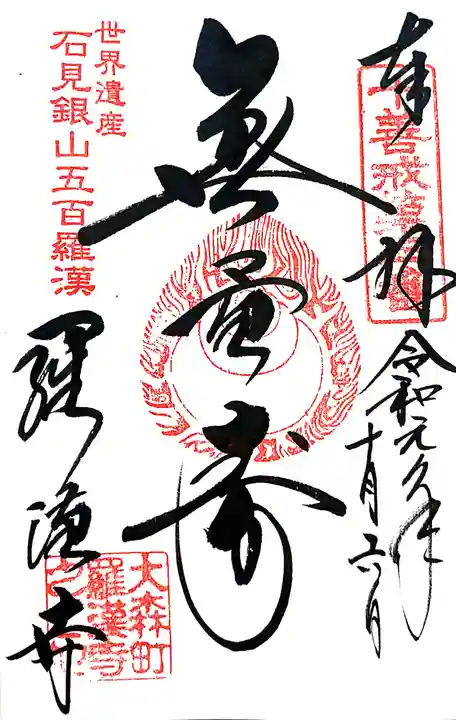 奉拝
十善戒尊霊場
令和元久年
十月六日
無量寿
世界遺産
石見銀山五百羅漢
羅漢寺
大森町
羅漢寺